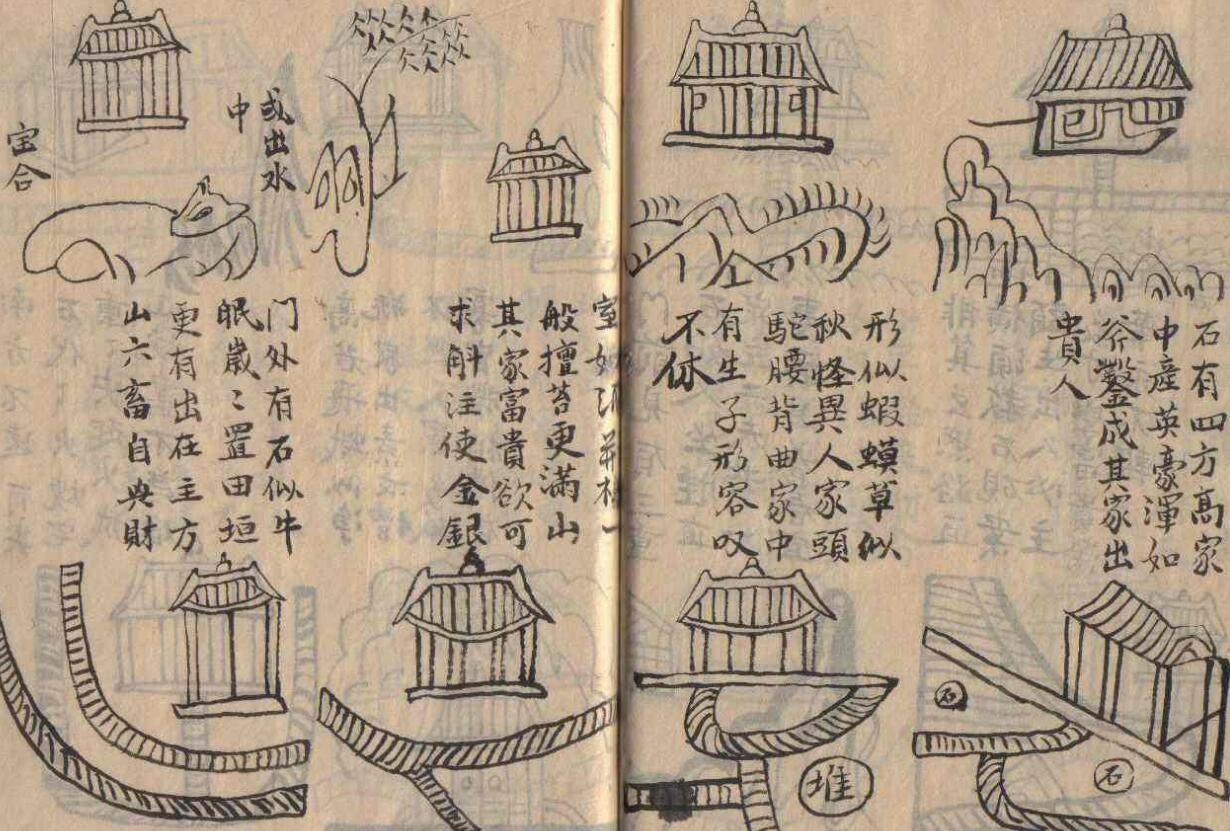 石有四方高家
中産英豪渾如
斧鑿成其家出
貴人
形似蝦蟆草似
秋怪異人家頭
駝腰背曲家中
有生子形容叹
不休
堆
石
石
般擅苔更满山
其家富貴欲可
求斛注使金銀
或出水
中
宝合
门外有石似牛
眠歲〻置田垣
更有出在主方
山六畜自典財